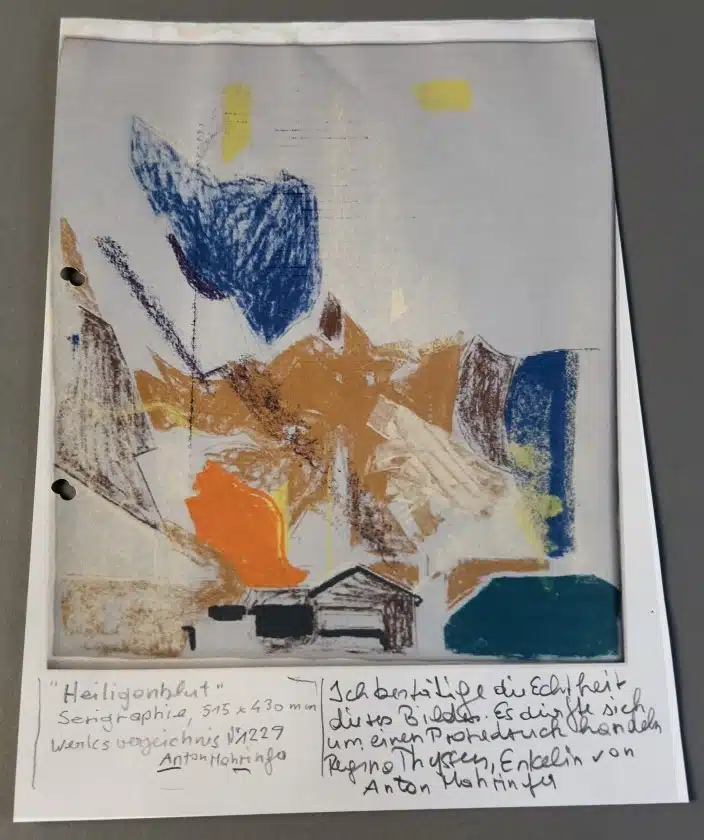 "Heiligenblut"
Serigraphie, 515 x 430 mm
Werksverzeichnis N°1229
Anton Mahringer
Ich bestätige die Echtheit
dieses Bildes. Es dürfte sich
um einen Probedruck handeln
Regina Thyssen, Enkelin von
Anton Mahringer